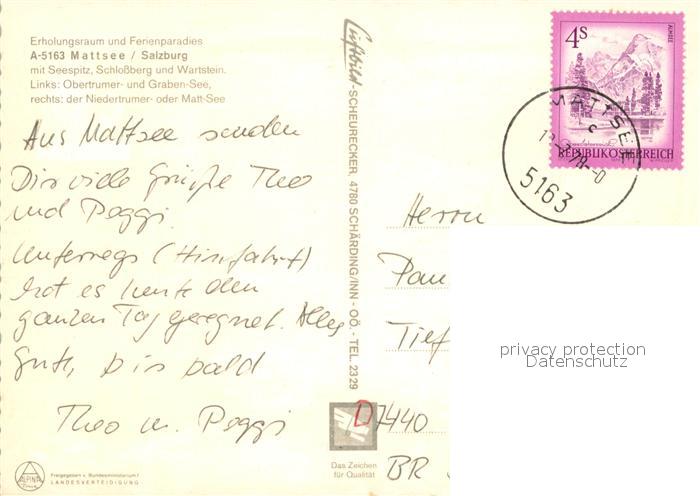 Erholungsraum und Ferienparadies
A-5163 Mattsee / Salzburg
mit Seespitz, Schloßberg und Wartstein.
Links: Obertrumer- und Graben-See,
rechts: der Niedertrumer- oder Matt-See
Aus Mattsee senden
Dir viele Grüße Theo
und Peggi.
Unterwegs (Hinfahrt)
hat es heute den
ganzen Tag geregnet. Alles
Gute, bis bald
Theo u. Peggi
ALPINA
Freigegeben v. Bundesministerium f.
LANDESVERTEIDIGUNG
Luftbild-SCHEURECKER, 4780 SCHÄRDING/INN - OÖ. - TEL. 2329
Das Zeichen
für Qualität
4S
ALMSEE
REPUBLIK ÖSTERREICH
MATTSEE
5163
Herrn
Pau
Tief
D7440
BR
privacy protection
Datenschutz